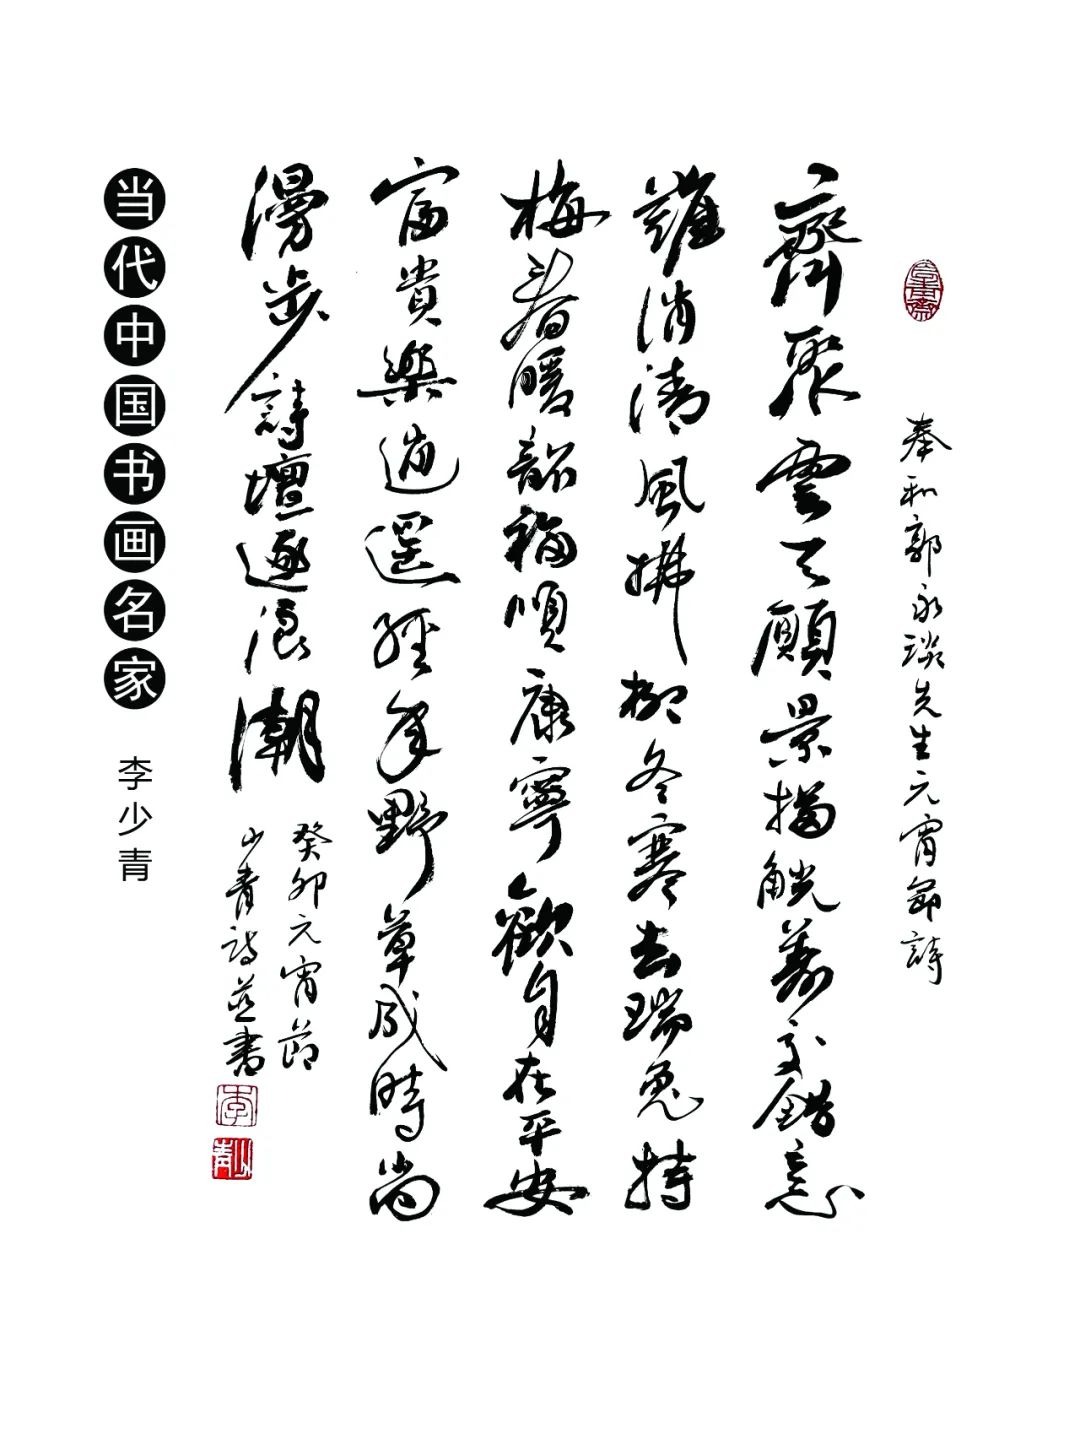 奉和郭永琰先生元宵節詩
齊聚雲天願景描觥籌交錯意
難消清風拂柳冬寒去瑞兔持
梅春暖韶福順康寧歡自在平安
富貴樂逍遙經年野草成時尚
漫步詩壇逐浪潮
癸卯元宵節
少青詩並書
李
少青
当代中国书画名家
李少青